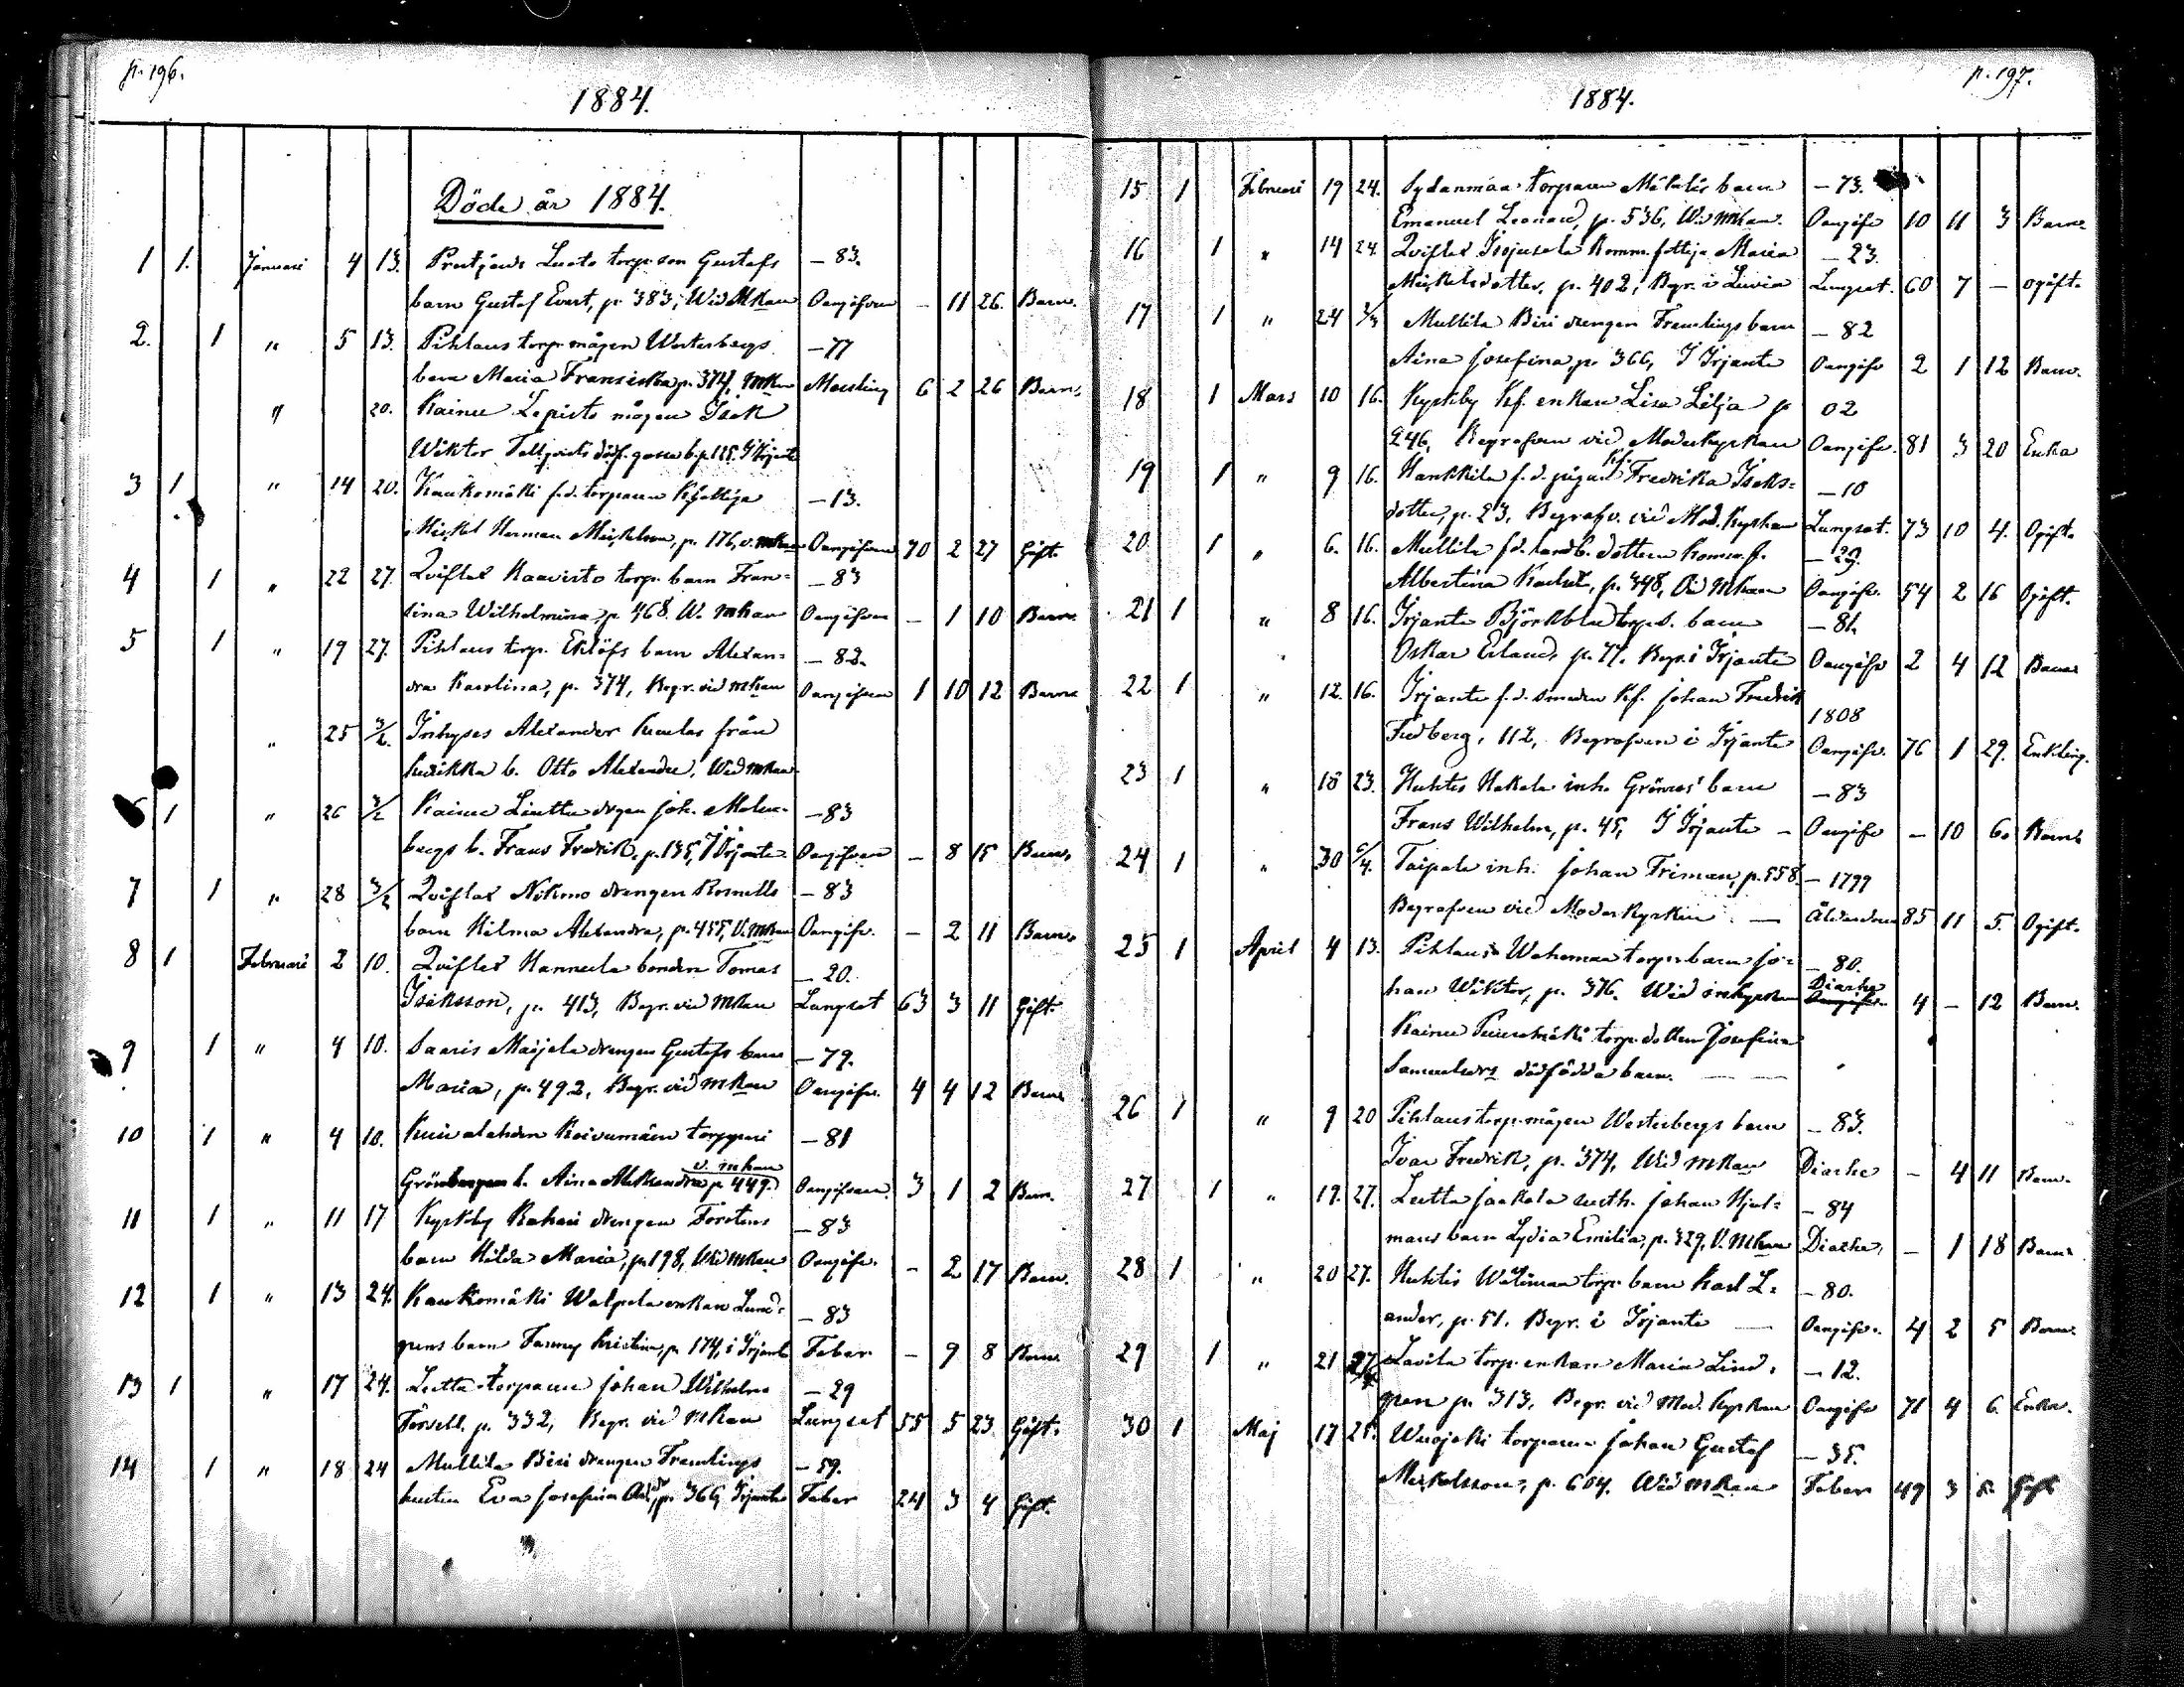 p. 196.
1884.
Döde år 1884.
1 1. Januari 4 13. Prutjens Luoto torp. son Gustafs – 83.
barn Gustaf Evert, p. 383, Wid MKan Oangifven – 11 26. Barn.
2. 1 " 5 13. Pihlaus torp. mågen Westerbergs – 77
barn Maria Fransiska p. 374, mkn Messling 6 2 26 Barn.
" 20. Kainu Lepistö mågen Isak
Wiktor dödf. gosse b. p. 125.
3 1 " 14 20. Kaukomäki f.d. torparen – 13.
Mickel Herman Mickelsson, p. 176, v. mkan Oangifven 70 2 27 Gift.
4 1 " 22 27. Qviflax Haavisto torp. barn Fran= – 83
sina Wilhelmina p. 468. W. mkan Oangifven – 1 10 Barn.
5 1 " 19 27. Pihlaus torp. Eklöfs barn Alexan= – 82.
dra Karolina, p. 374, Begr. vid mkan Oangifven 1 10 12 Barn
" 25 3/2. Inhyses Alexander från
b. Otto Alexander, Wid mkan
6 1 " 26 3/2 Kainu drgen Joh. – 83
bergs b. Frans Fredrik, p. 135, I Irjante Oangifven – 8 15 Barn.
7 1 " 28 3/2 Qviflax drengen – 83
barn Hilma Alexandra, p. 455, V. mkan Oangifv. – 2 11 Barn.
8 1 Februari 2 10. Qviflax Hannula bonden Tomas – 20.
Isaksson, p. 413, Begr. vid mkan Lungsot 63 3 11 Gift.
9 1 " 4 10. Saaris Maijala drengen Gustafs barn – 79.
Maria, p. 492, Begr. vid mkan Oangifv. 4 4 12 Barn
10 1 " 4 10. Kuivalahden Koivumäen torppari – 81
v. mkan
b. Aina Aleksandra p. 449. Oangifven. 3 1 2 Barn.
11 1 " 11 17 Kyrkby drengen – 83
barn Hilda Maria, p. 198, Wid mkan Oangifv. – 2 17 Barn.
12 1 " 13 24. Kaukomäki Walpola enkan Lund= – 83
barn Fanny Kristina, p. 174, i Irjante Feber – 9 8 Barn
13 1 " 17 24. Lutta torparen Johan Wilhelm – 29
Forsell. p. 332, Begr. vid mkan Lungsot 55 5 23 Gift.
14 1 " 18 24 Mullila Biri drengen Främlings – 59.
hustru Eva Josefina p. 366, Irjante Feber 24 3 4 Gift.
p. 197.
1884.
15 1 Februari 19 24. Sydänmaa torparen barn – 73.
Emanuel Leonard, p. 536, Wid mkan. Oangifv 10 11 3 Barn.
16 1 " 14 24 Qviflax Maria – 23.
Mickelsdotter, p. 402, Begr. i Luvia Lungsot. 60 7 – ogift.
17 1 " 24 2/3 Mullila Biri drengen Främlings barn – 82
Aina Josefina, p. 366, I Irjante Oangifv 2 1 12 Barn.
18 1 Mars 10 16. Kyrkby enkan Lisa Lilja p 02
246, Begrafven vid Moderkyrkan Oangifv. 81 3 20 Enka
19 1 " 9 16. Hankkila f.d. pigan Fredrika Isaks= – 10
dotter, p. 23, Begrafv. vid Mod. kyrkan Lungsot. 73 10 4. Ogift.
20 1 " 6. 16. Mullila dottern – 29.
Albertina p. 348, Vid Mkan Oangifv. 54 2 16 Ogift.
21 1 " 8 16. Irjante Björkblad torp. s. barn – 81.
Oskar Erland, p. 77. Begr. i Irjante Oangifv 2 4 12 Barn
22 1 " 12. 16. Irjante f.d. smeden Johan Fredrik 1808
112, Begrafven i Irjante Oangifv. 76 1 29. Enkling.
23 1 " 18 23. Huhtis Hakala inh. Grönroos' barn – 83
Frans Wilhelm, p. 45, I Irjante – Oangifv – 10 6. Barn
24 1 " 30 6/4. Taipale inh. Johan Friman, p. 558. – 1799
Begrafven vid Moderkyrkan – Ålderdom 85 11 5. Ogift.
25 1 April 4 13. Pihlaus torp. barn Jo= – 80.
han Wiktor, p. 376. Wid Diarhe 4 – 12 Barn.
Kainu torp. dottern Josefina
dödfödda barn. – –
26 1 " 9 20 Pihlaus torp. mågen Westerbergs barn – 83.
Ivar Fredrik, p. 374, Wid mkan Diarhe – 4 11 Barn.
27 1 " 19. 27. Lutta Jaakola Johan Hjul= – 84
mans barn Lydia Emilia, p. 329, V. Mkan Diarhe, – 1 18 Barn
28 1 " 20 27. Huhtis torp. barn Karl L= – 80.
ander, p. 51. Begr. i Irjante – Oangifv. 4 2 5 Barn.
29 1 " 21 27/4 Lavila torp. enkan Maria Lind= – 12.
gren p. 313, Begr. vid Mod. Kyrkan Oangifv 71 4 6. Enka.
30 1 Maj 17 25. Wuojoki torparen Johan Gustaf – 35.
Mickelsson, p. 604. Wid mkan Feber 49 3 8. Gift